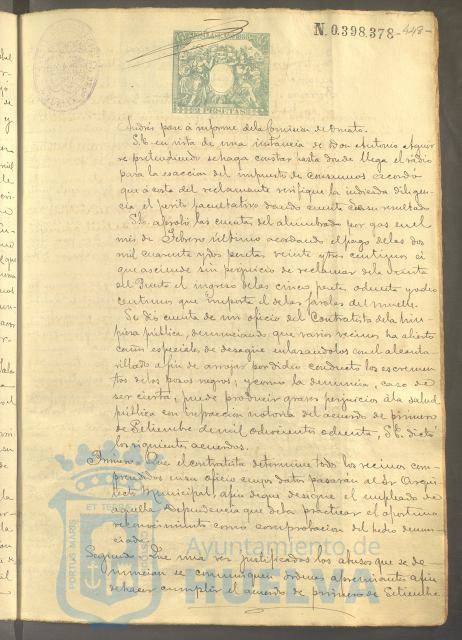 N.0.398.378
448
2 PESETAS
Andrés pase á informe de la Comision de Ornato.
S.E. en vista de una instancia de Don Antonio
re pretendiendo se haga constar hasta donde llega el rádio
para la esaccion del impuesto de consumos acordó
que á costa del reclamante verifique la indicada diligen-
cia el perito facultativo dando cuenta de su resultado
S.E. aprobó las cuentas del alumbrado por gas en el
mes de Febrero último acordando el pago de las dos
mil cuarenta y dos pesetas veinte y tres centimos á
que asciende sin perjuicio de reclamar de la Junta
del Puerto el ingreso de las cinco pesetas ochenta y ocho
centimos que importa el de las farolas del muelle.
Se dió cuenta de un oficio del Contratista de la lim-
pieza pública, denunciando que varios vecinos ha abierto
caños especiales de desagüe enlasandolos con el alcanta-
rillado á fin de arrojar por dicho conducto los escremen-
tos de los pozos negros; y como la denuncia, caso de
ser cierta, puede producir graves perjuicios á la salud
pública con infraccion notoria del acuerdo de primero
de Setiembre de mil ochocientos ochenta, S.E. dictó
los siguientes acuerdos.
Primero. Que el contratista determine todos los vecinos com-
prendidos en su oficio cuyos datos pasarán al Sr Arqui-
tecto Municipal, á fin de que designe el empleado de
aquella dependencia que deba practicar el oportuno
reconocimiento como comprobacion del hecho denun-
ciado.
Segundo. Que una vez justificados los abusos que se de-
nuncian se comuniquen ordenes apremiantes á fin
de hacer cumplir el acuerdo de primero de Setiembre
Ayuntamiento de
HUELVA
PORTUS MARIS
ET TERRAE